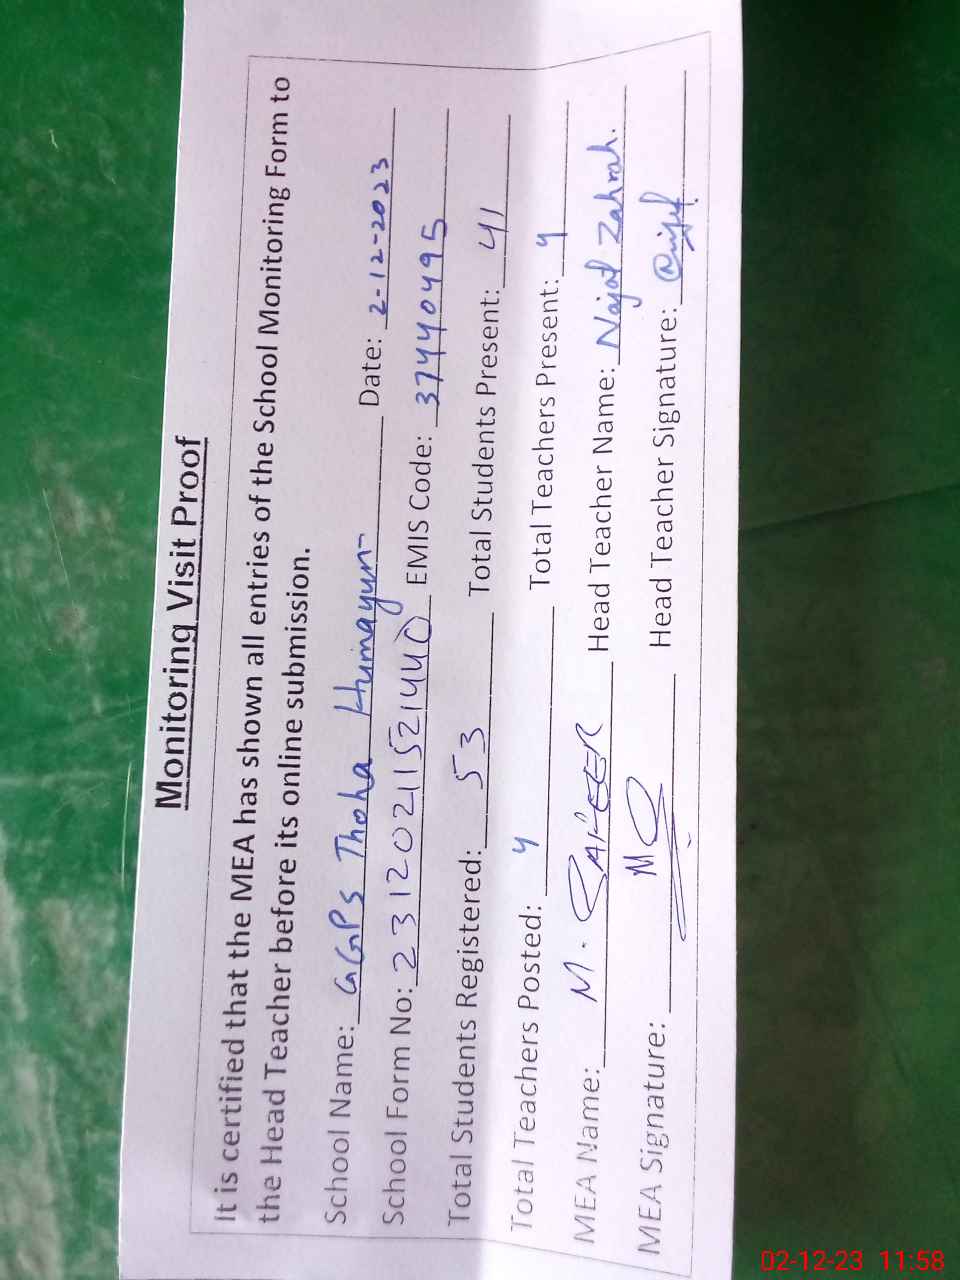 Monitoring Visit Proof
It is certified that the MEA has shown all entries of the School Monitoring Form to
the Head Teacher before its online submission.
School Name: GGPS Thoha Humayun Date: 2-12-2023
School Form No: 23120211521440 EMIS Code: 37440495
Total Students Registered: 53 Total Students Present: 41
Total Teachers Posted: 4 Total Teachers Present: 4
MEA Name: M. SAFEER Head Teacher Name: Najaf Zahrah.
MEA Signature: Head Teacher Signature:
02-12-23 11:58